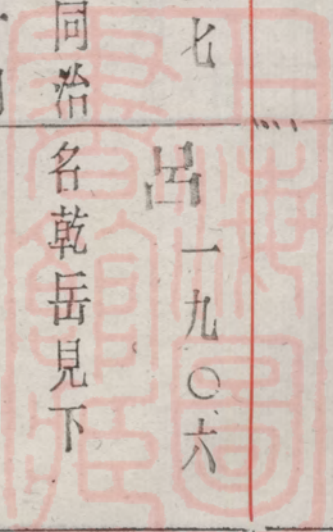 七
呂一九〇六
同治
名乾岳見下